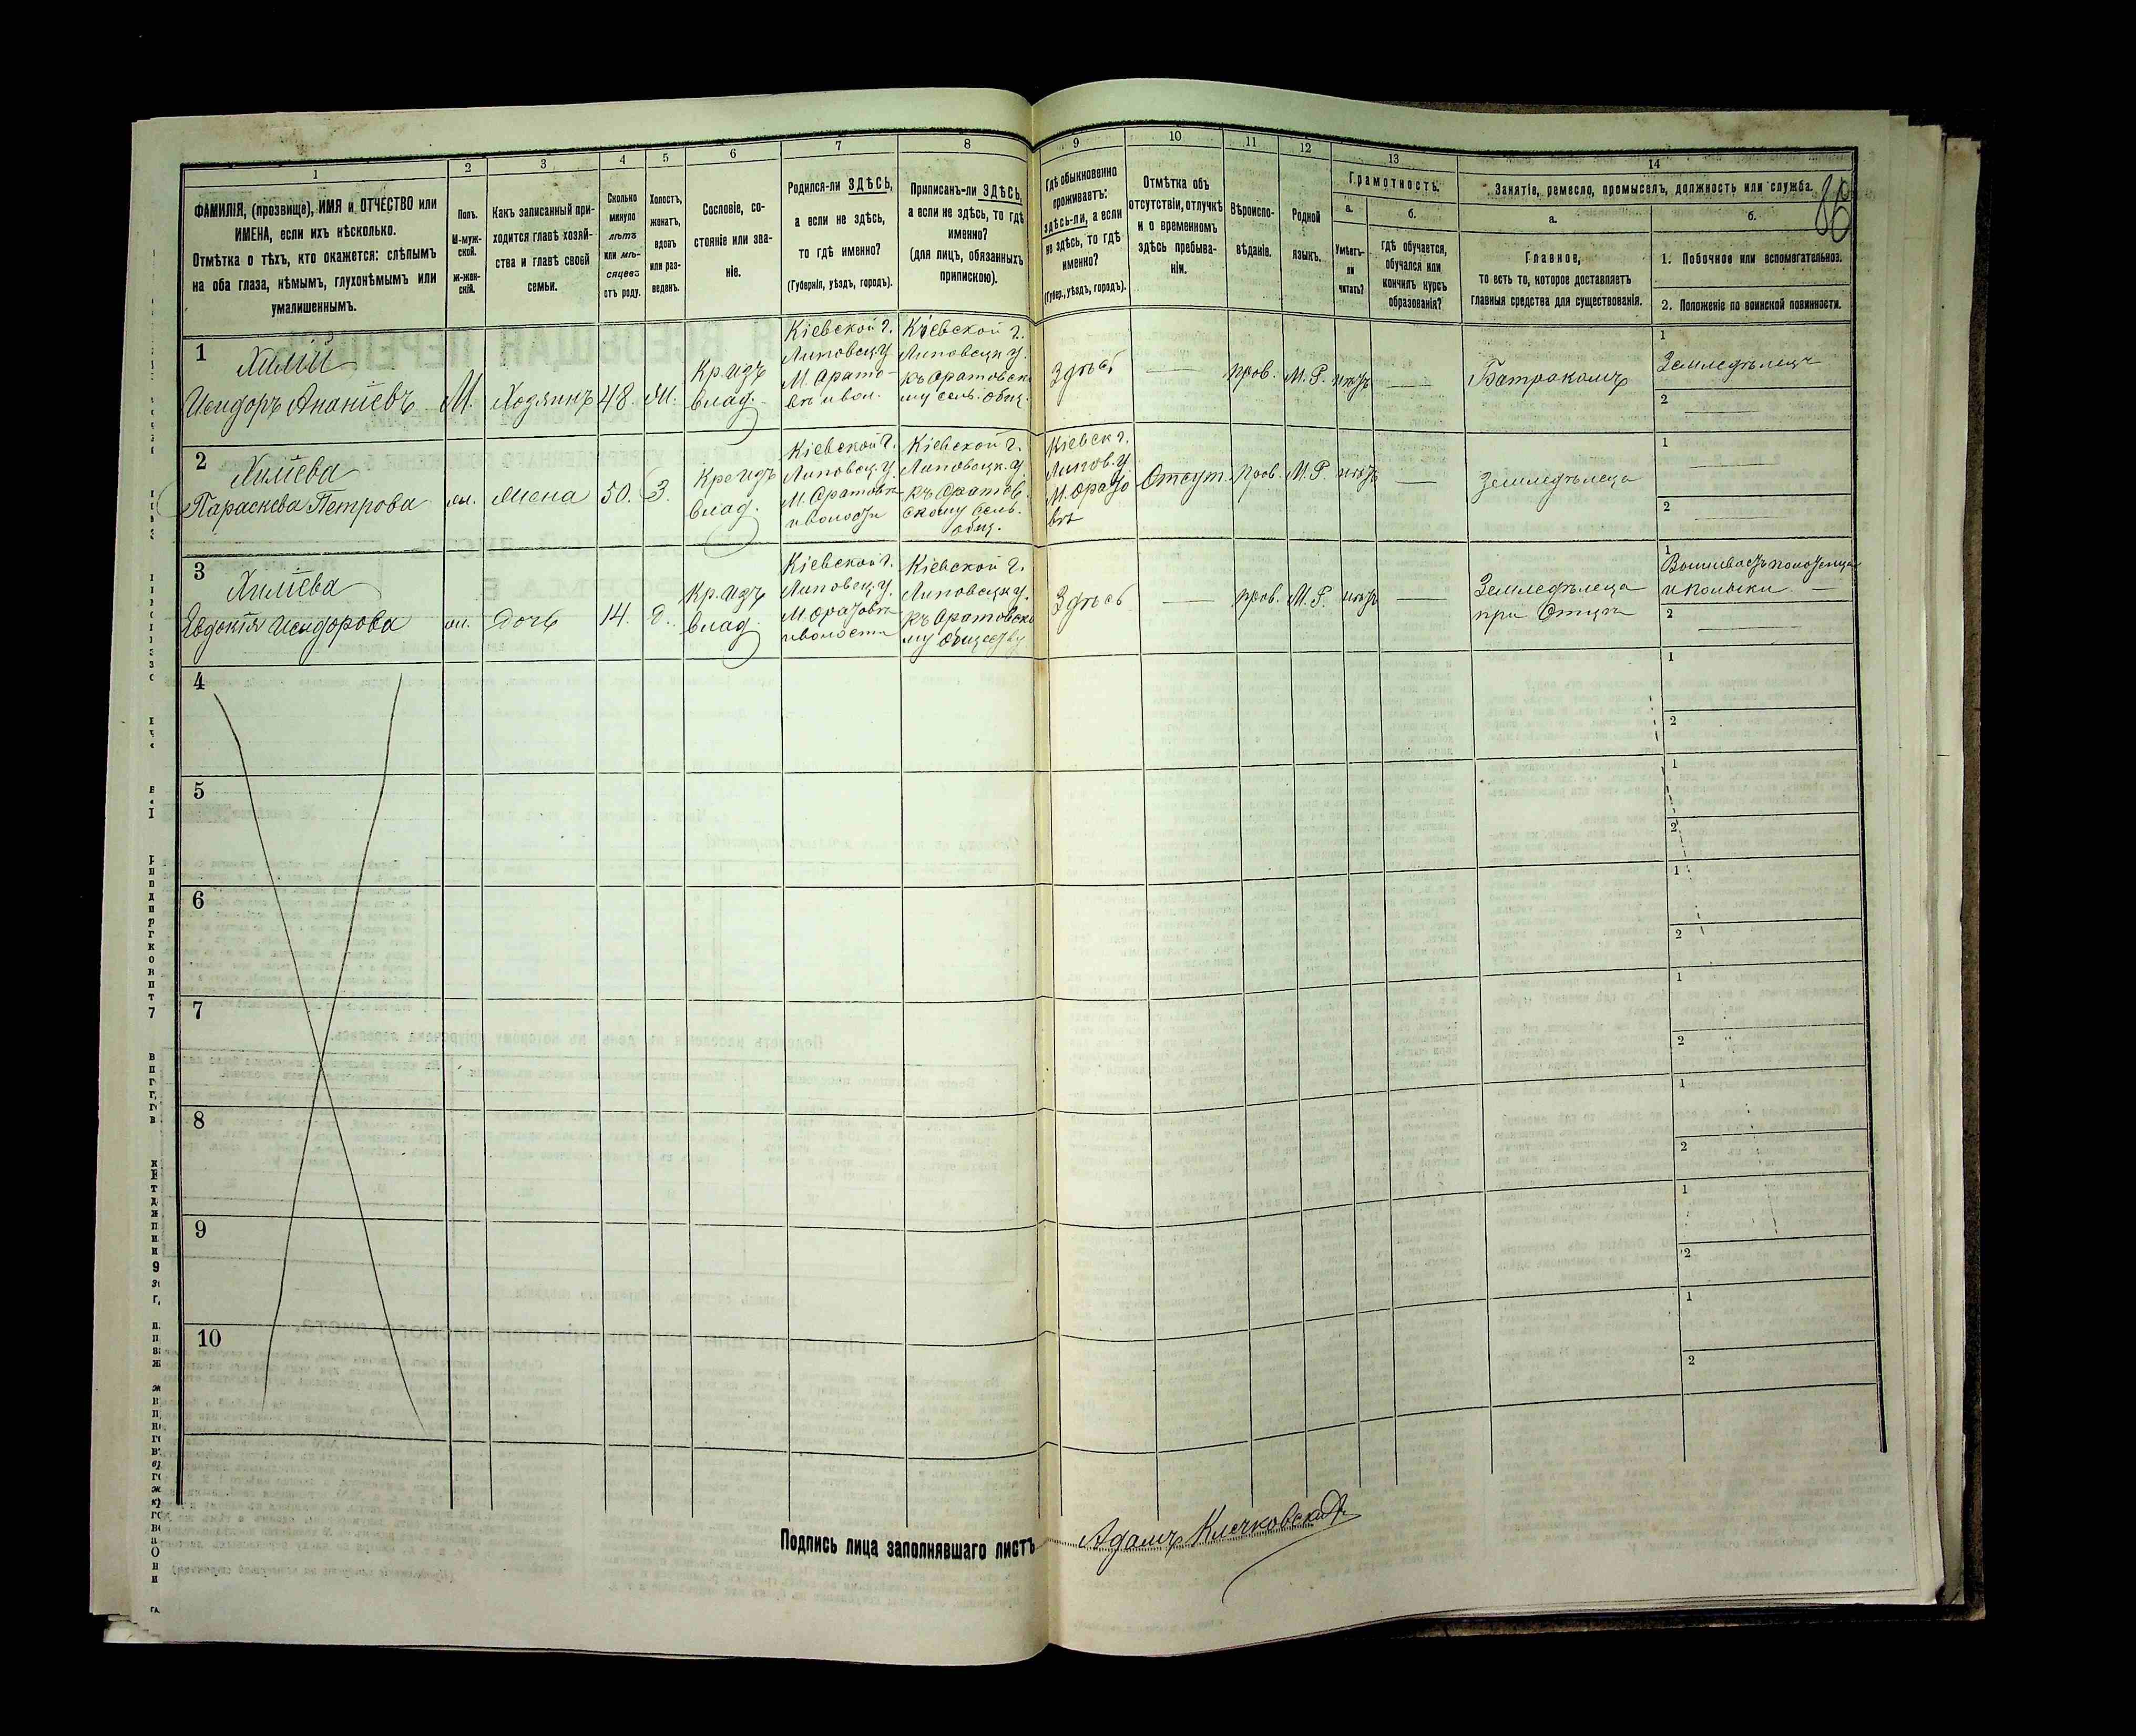 1
2
3
4
5
6
7
8
9
10
11
12
13
14
86
ФАМИЛІЯ, (прозвище), ИМЯ и ОТЧЕСТВО или
ИМЕНА, если ихъ нѣсколько.
Отмѣтка о тѣхъ, кто окажется: слѣпымъ
на оба глаза, нѣмымъ, глухонѣмымъ или
умалишеннымъ.
Полъ.
М-муж-
ской.
ж-жен-
скій.
Какъ записанный при-
ходится главѣ хозяй-
ства и главѣ своей
семьи.
Сколько
минуло
лѣтъ
или мѣ-
сяцевъ
отъ роду.
Холостъ,
жонатъ,
вдовъ
или раз-
веденъ.
Сословіе, со-
стояніе или зва-
ніе.
Родился-ли ЗДѢСЬ,
а если не здѣсь,
то гдѣ именно?
(Губернія, уѣздъ, городъ).
Приписанъ-ли ЗДѢСЬ,
а если не здѣсь, то гдѣ
именно?
(для лицъ, обязанныхъ
припискою).
Гдѣ обыкновенно
проживаетъ:
здѣсь-ли, а если
не здѣсь, то гдѣ
именно?
(Губер., уѣздъ, городъ).
Отмѣтка объ
отсутствіи, отлучкѣ
и о временномъ
здѣсь пребыва-
ніи.
Вѣроиспо-
вѣданіе.
Родной
языкъ.
Грамотность.
а.
Умѣетъ-
ли
читать?
б.
гдѣ обучается,
обучался или
кончилъ курсъ
образованія?
Занятіе, ремесло, промыселъ, должность или служба.
а.
Главное,
то есть то, которое доставляетъ
главныя средства для существованія.
б.
1. Побочное или вспомогательное.
2. Положеніе по воинской повинности.
1
Хилій
Исидоръ Ананіевъ
М.
Хозяинъ
48.
Ж.
Кр. изъ
влад.
Кіевской г.
Липовец. у.
М. Орато-
вѣ и вол.
Кіевской г.
Липовецк у.
къ Оратовско
му сель. общ.
Здѣсь
прав.
М. Р.
нѣтъ
Батракомъ
1
Земледѣлецъ
2
2
Хиліева
Параскева Петрова
ж.
Жена
50.
З.
Кр. изъ
влад.
Кіевской г.
Липовец. у.
М. Оратовѣ
и волости
Кіевской г.
Липовецк. у.
къ Оратов
скому сель.
общ.
Кіевск г.
Липов. у.
М. Орато
вѣ
Отсут.
прав.
М. Р.
нѣтъ
Земледѣлецъ
1
2
3
Хиліева
Евдокія Исидорова
ж.
Дочь
14.
д.
Кр. изъ
влад.
Кіевской г.
Липовец у.
М. Оратовѣ
и волости
Кіевской г.
Липовецк у.
къ Оратовско
му обществу
Здѣсь
прав.
М. Р.
нѣтъ
Земледѣлеца
при Отцѣ
1
2
4
1
2
5
1
2
6
1
2
7
1
2
8
1
2
9
1
2
10
1
2
Подпись лица заполнявшаго листъ
Адамъ Клечковскій